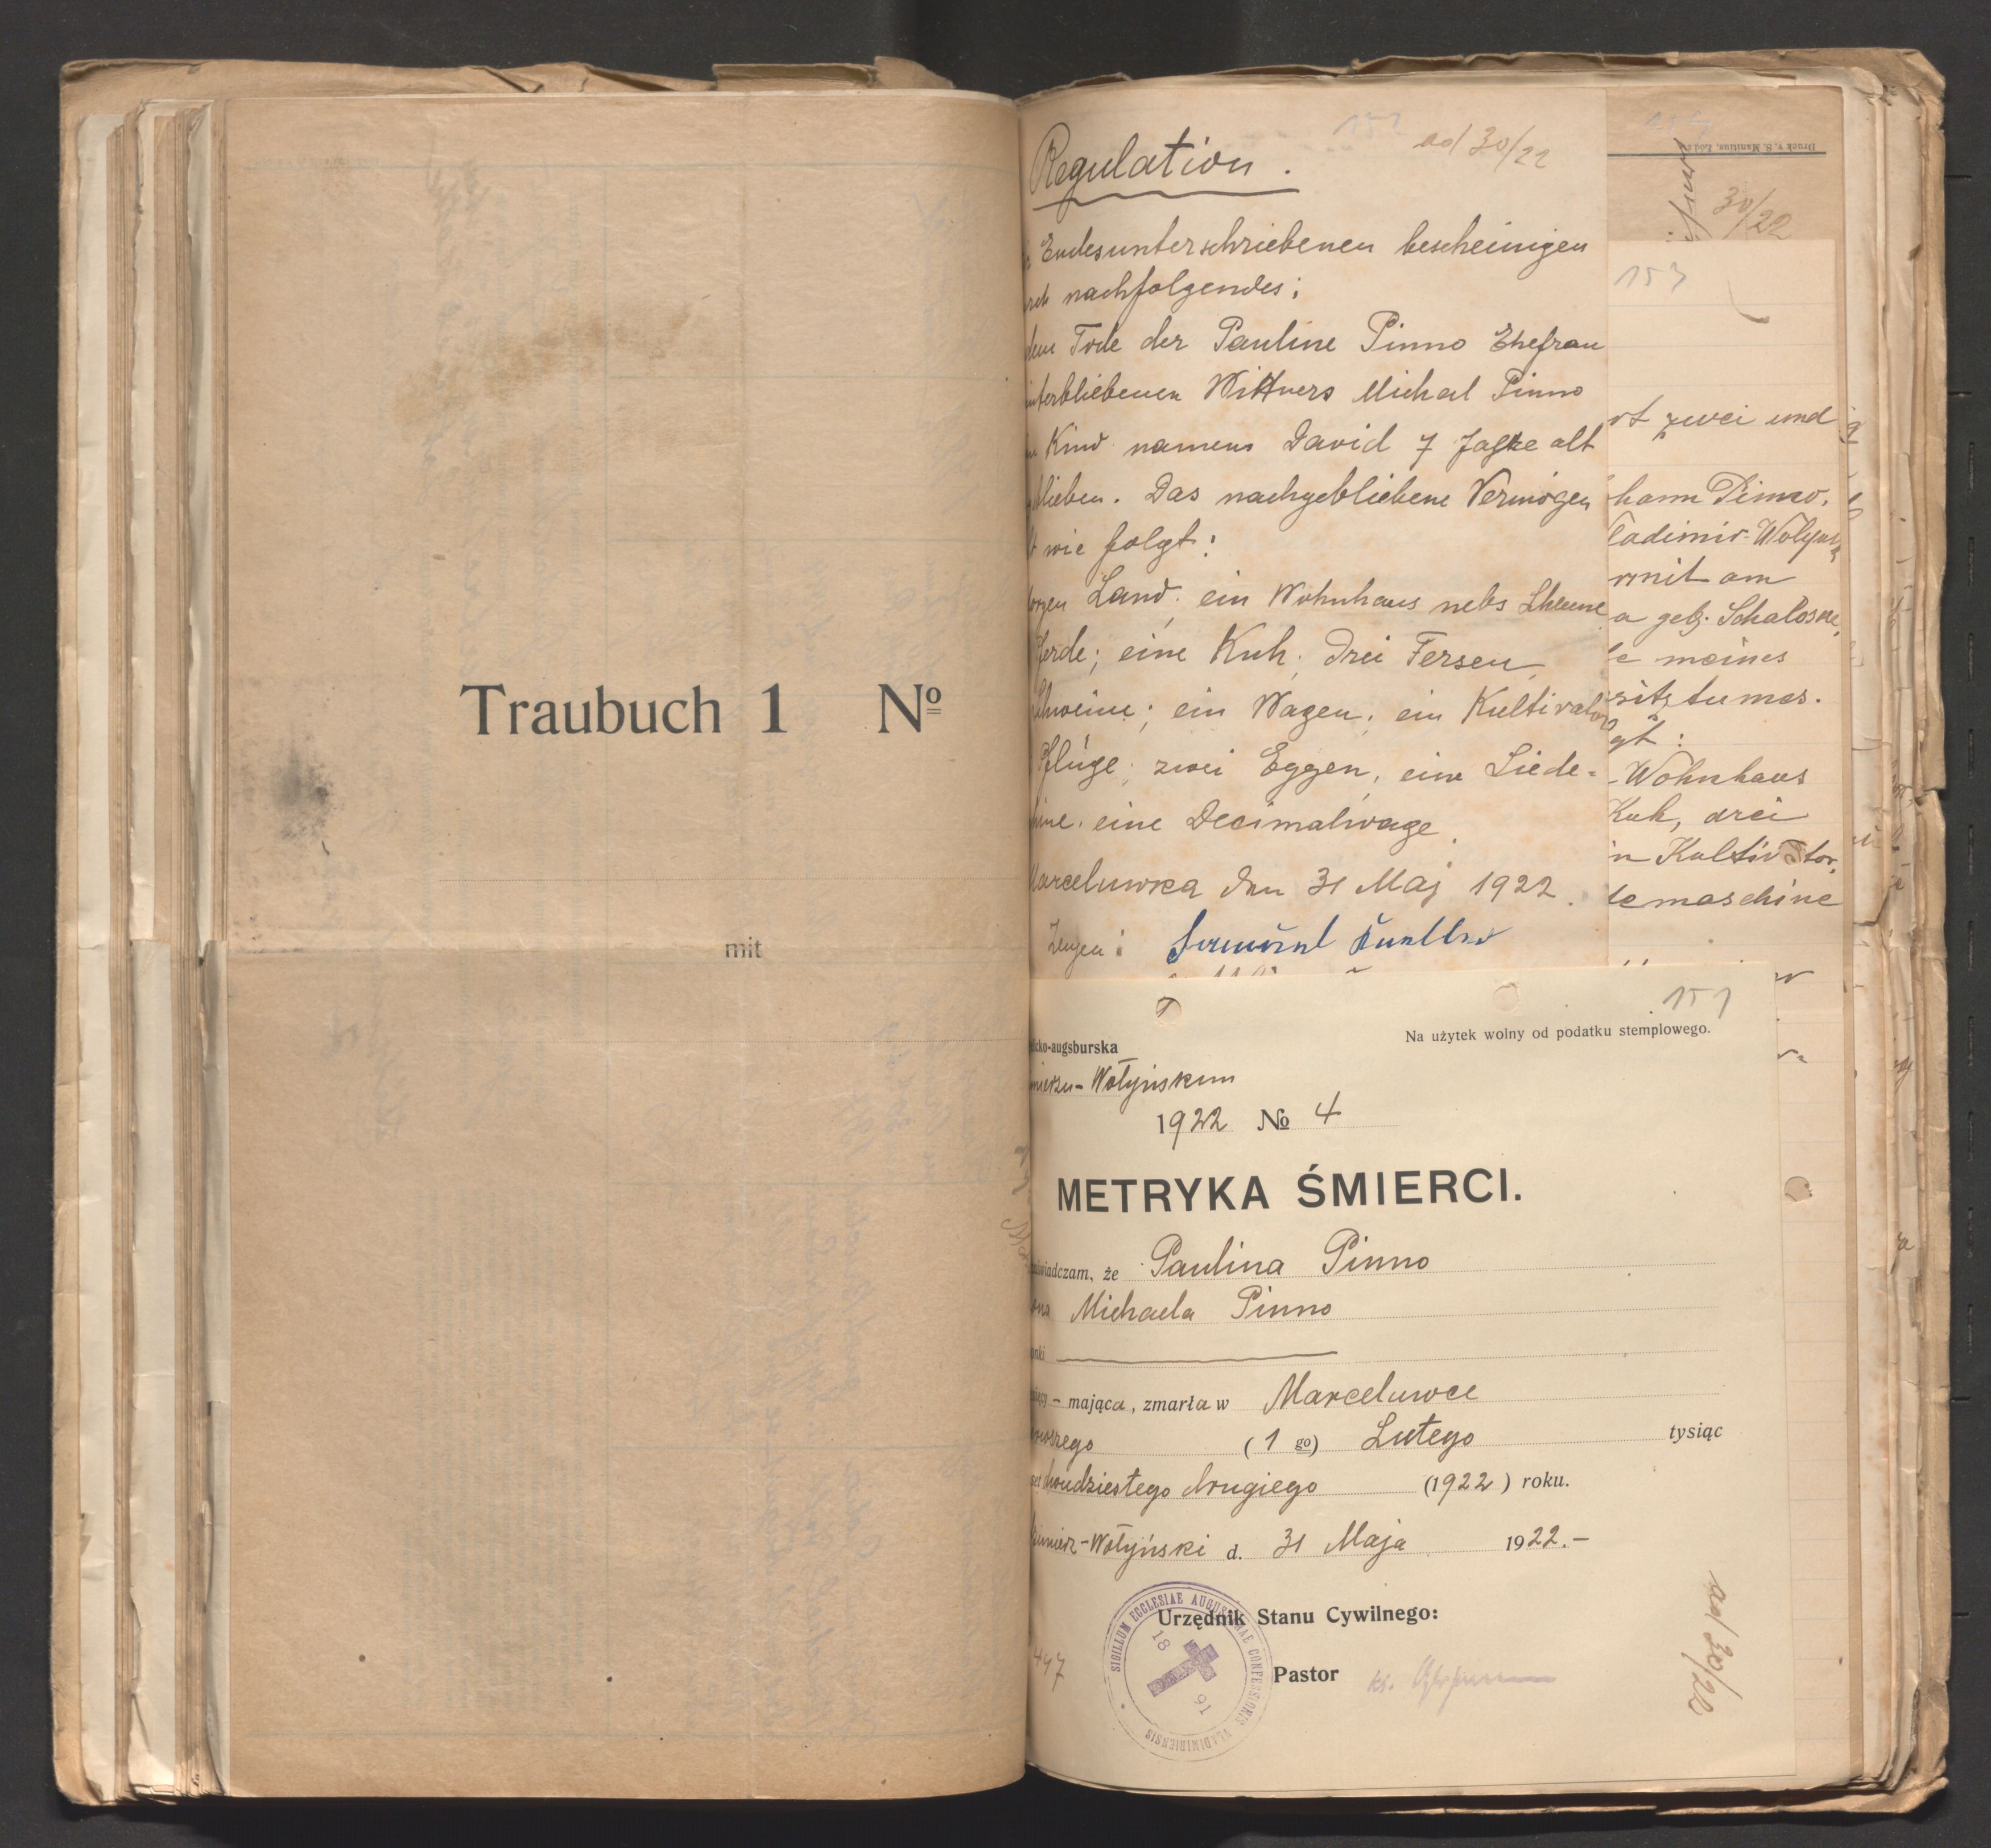 Traubuch 1 №
mit
ad 30/22
Regulation.
Endesunterschriebenen bescheinigen
nachfolgendes;
dem Tode der Pauline Pinno Ehefrau
interbliebenen Wittwers Michael Pinno
Kind namens David 7 Jahre alt
blieben. Das nachgebliebene Vermögen
wie folgt:
orgen Land; ein Wohnhaus nebs Scheune
Pferde; eine Kuh; drei Fersen,
Schweine; ein Wagen; ein Kultivator
Pflüge; zwei Eggen; eine Siede=
hine; eine Decimalwage.
Marceluwka den 31 Maj 1922.
Zeugen:
Druck v. S. Manitius, Łódź
30/22
153
rt zwei und
hann Pinno,
ladimir-Wolynsk
rmit am
a geb. Schaloske,
e meines
sitztumes.
gt:
-Wohnhaus
Kuh, drei
n Kultivator,
demaschine
151
Na użytek wolny od podatku stemplowego.
licko-augsburska
mierzu-Wołyńskum
1922 № 4
METRYKA ŚMIERCI.
aświadczam, że Paulina Pinno
ona Michaela Pinno
onki
mająca, zmarła w Marceluwce
rwszego (1 go) Lutego tysiąc
set dwudziestego drugiego (1922) roku.
zimierz-Wołyński d. 31 Maja 1922.-
Urzędnik Stanu Cywilnego:
Pastor ks.
SIGILLUM ECCLESIAE AUGUSTANAE CONFESSIONIS VLADIMIRIENSIS
18 91
447
ad 30/22